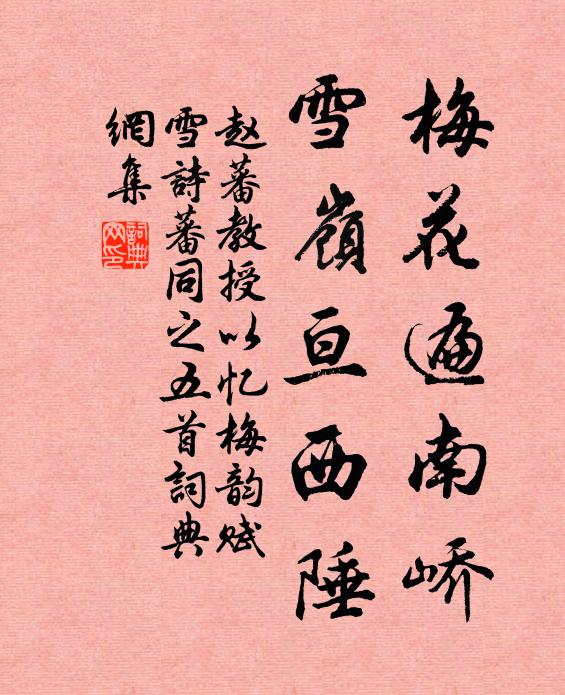 梅花遍南峤
雪嶺亘西陲
赵蕃教授以忆梅韵赋
雪詩蕃同之五首詞典
網集
詞典
网印